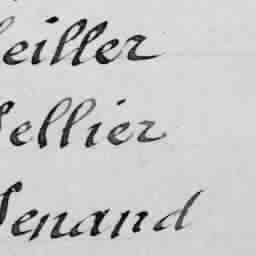 eiller
ellier
enand